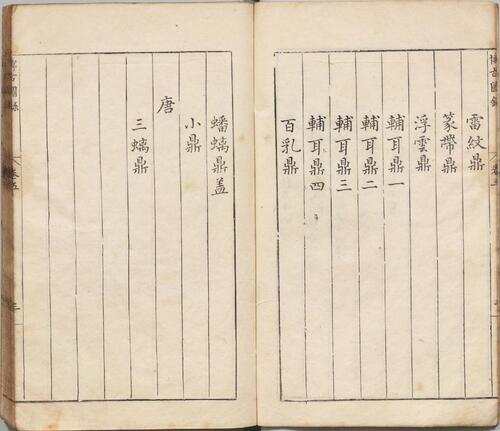 雷紋鼎
篆帶鼎
浮雲鼎
輔耳鼎一
輔耳鼎二
輔耳鼎三
輔耳鼎四
百乳鼎
蟠螭鼎蓋
小鼎
唐
三螭鼎
卷五